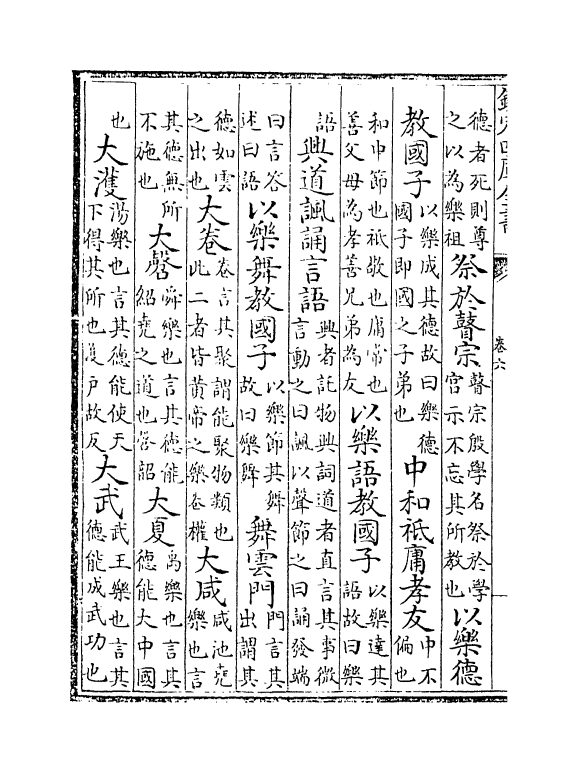 欽定四庫全書
卷六
德者死則尊之以為樂祖祭於瞽宗瞽宗殷學名祭於學宫示不忘其所教也以樂德
教國子以樂成其德故曰樂德國子即國之子弟也中和祗庸孝友中不偏也
和中節也祗敬也庸常也善父母為孝善兄弟為友以樂語教國子以樂達其語故曰樂
語興道諷誦言語興者託物興詞道者直言其事微言動之曰諷以聲節之曰誦發端
曰言答述曰語以樂舞教國子以樂節其舞故曰樂舞舞雲門門言其出謂其
德如雲之出也大卷卷言其聚謂能聚物類也此二者皆黄帝之樂卷權大咸咸池堯樂也言
其德無所不施也大磬舜樂也言其德能紹堯之道也磬韶大夏禹樂也言其德能大中國
也大濩湯樂也言其德能使天下得其所也濩户故反大武武王樂也言其德能成武功也